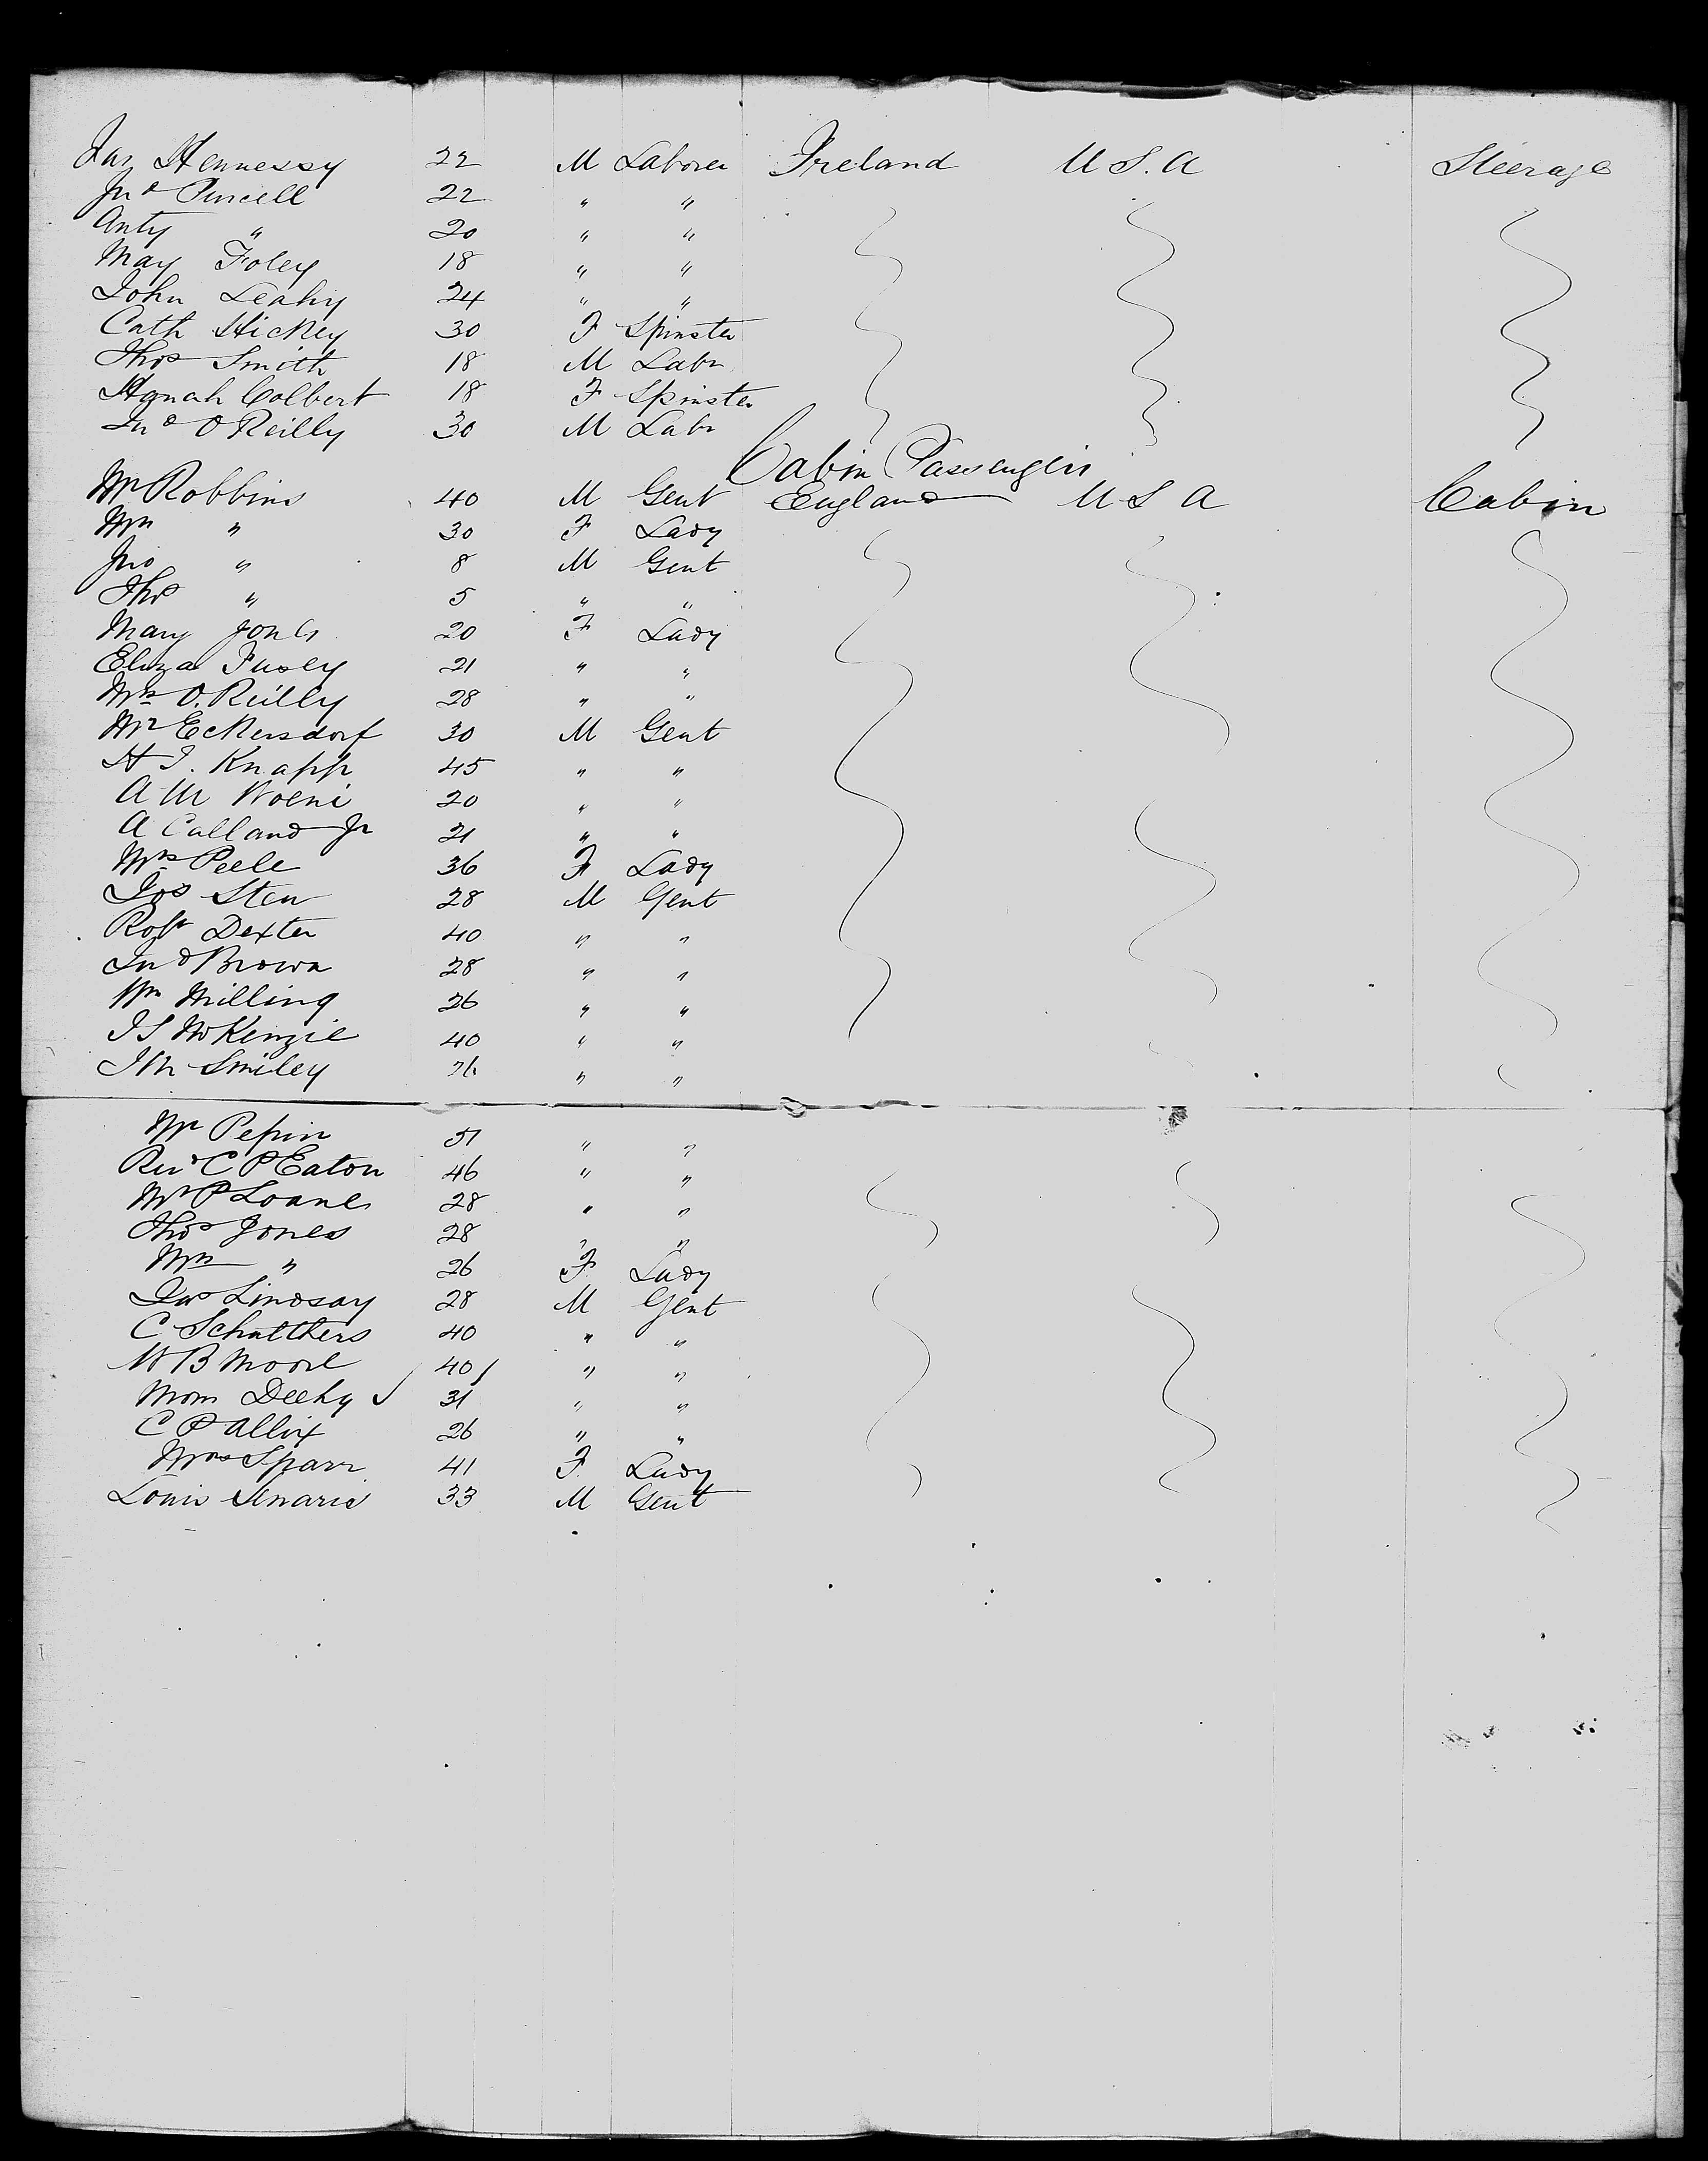 Jas Hennessy 22 M Laborer Ireland U S. A Steerage
Jno Purcell 22 " "
Anty " 20 " "
May Foley 18 " "
John Leahy 24 " "
Cath Hickey 30 F Spinster
Thos Smith 18 M Labr
Hanah Colbert 18 F Spinster
Jno O Reilly 30 M Labr
Cabin Passengers
Mr Robbins 40 M Gent England U S A Cabin
Mrs " 30 F Lady
Jno " 8 M Gent
Thos " 5 " "
Mary Jones 20 F Lady
Eliza Fusey 21 " "
Mrs O. Reilly 28 " "
Mr Eckersdorf 30 M Gent
H J. Knapp 45 " "
A M 20 " "
A Calland Jr 21 " "
Mrs Peele 36 F Lady
Jos Stew 28 M Gent
Robt Dexter 40 " "
Jno Brown 28 " "
Wm Milling 26 " "
J S McKenzie 40 " "
Smiley 26 " "
Mr Pepin 51 " "
Revd C P Eaton 46 " "
Mr P Loane 28 " "
Thos Jones 28 " "
Mrs " 26 F Lady
Jas Lindsay 28 M Gent
C Schutthers 40 " "
W B Moore 40 " "
Mom Deehy 31 " "
C P Allix 26 " "
Mrs Sparr 41 F Lady
Louis 33 M Gent